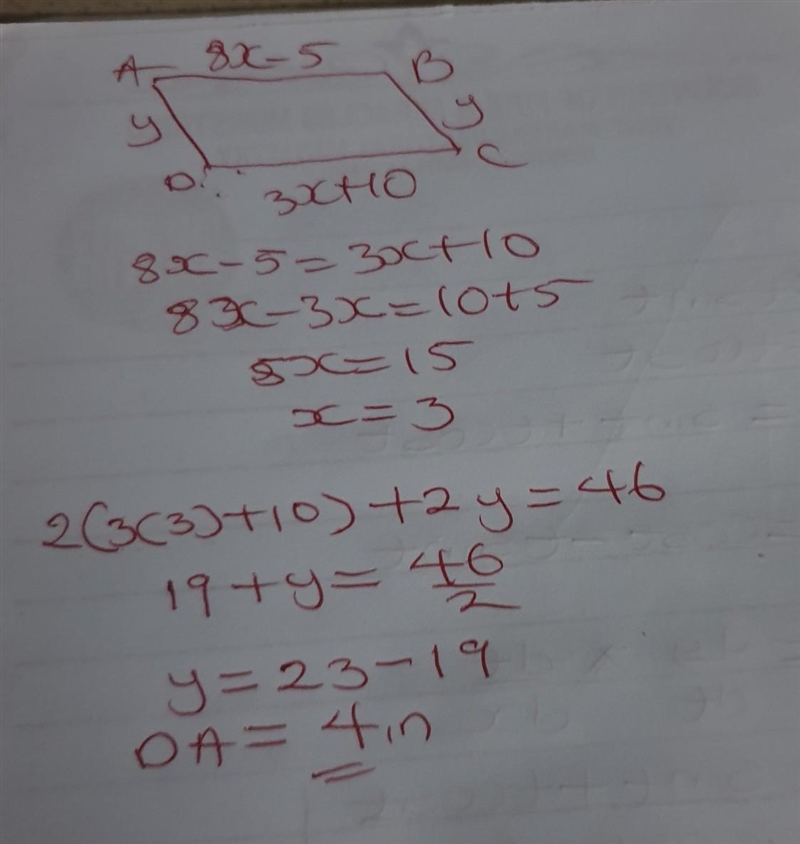 A 8x-5 B
y y
D C
3x+10
8x-5=3x+10
8x-3x=10+5
5x=15
x=3
2(3(3)+10)+2y=46
19+y=46/2
y=23-19
DA=4in